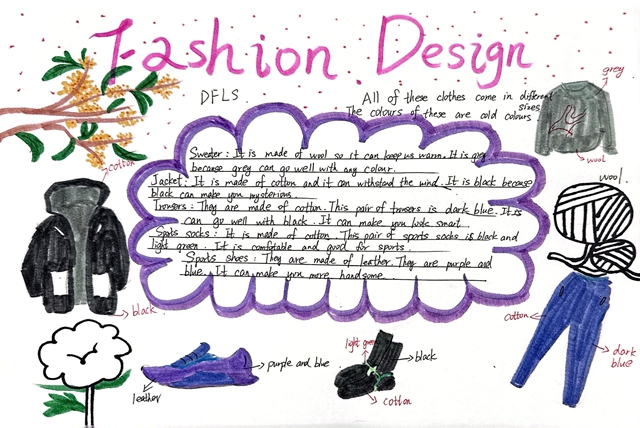 Fashion Design
DFLS
All of these clothes come in different
sizes.
The colours of these are cold colours
grey
wool
wool.
cotton
Sweater: It is made of wool so it can keep us warm. It is grey
because grey can go well with any colour.
Jacket: It is made of cotton and it can withstand the wind. It is black because
black can make you mysterious.
Trousers: They are made of cotton. This pair of trousers is dark blue. It is
can go well with black. It can make you look smart.
Sports socks: It is made of cotton. This pair of sports socks is black and
light green. It is comfortable and good for sports.
Sports shoes: They are made of leather. They are purple and
blue. It can make you more handsome.
black
cotton
dark
blue
leather
purple and blue
light green
black
cotton